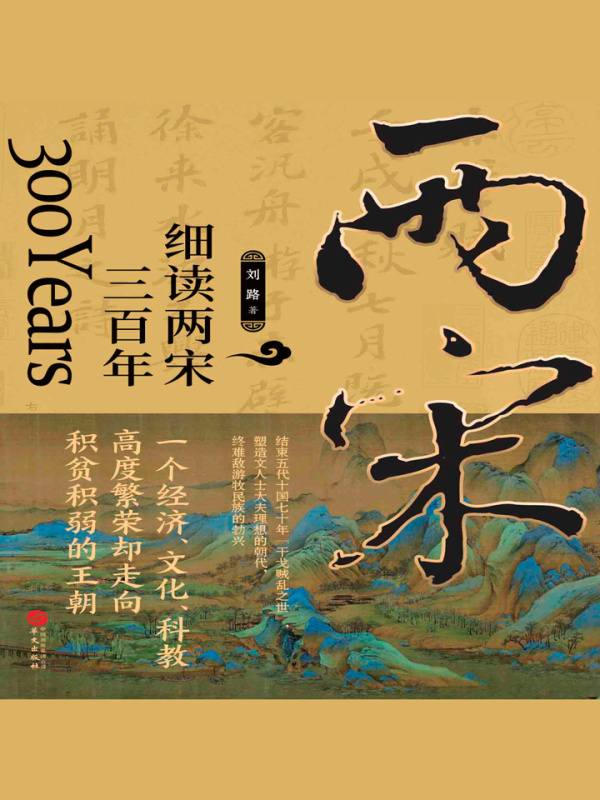 两宋
刘路 著
细读两宋
三百年
300 Years
结束五代十国七十年“干戈贼乱之世”，
塑造文人士大夫理想的朝代，
终难敌游牧民族的勃兴
一个经济、文化、科教
高度繁荣却走向
积贫积弱的王朝
华文出版社
壬戌
秋七月
客汎舟
徐来水
诵明月之诗